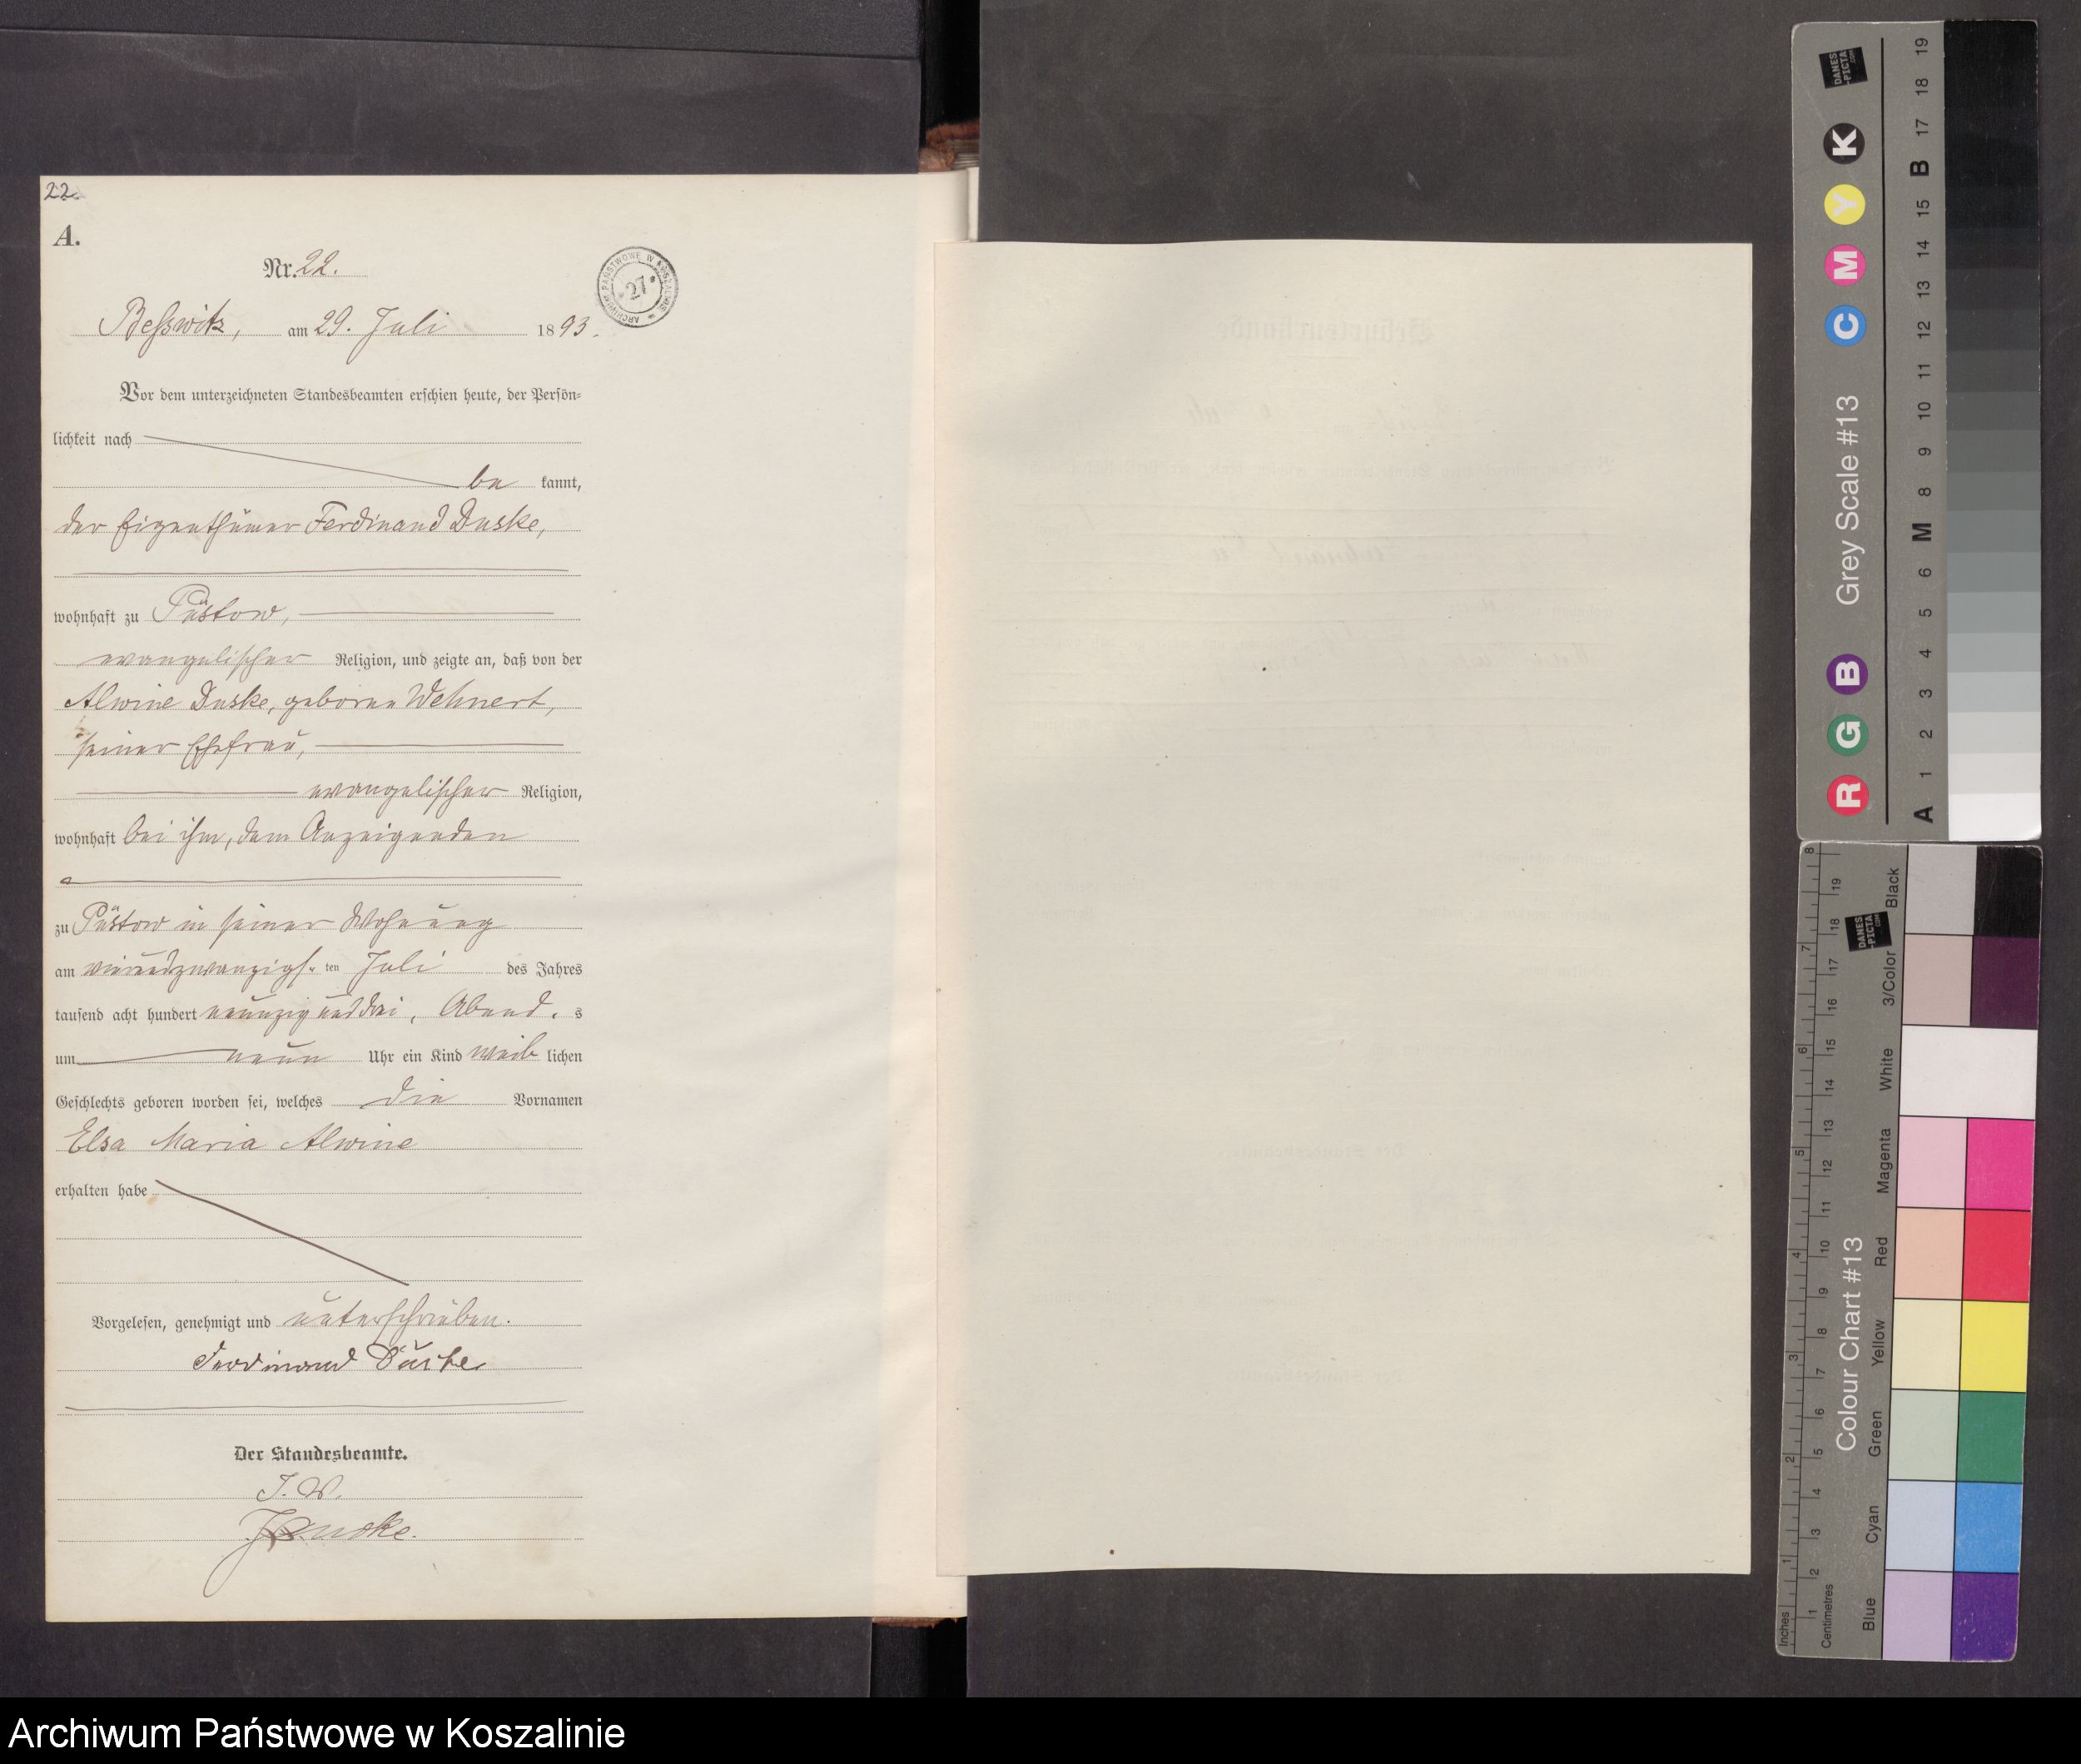 22.
A.
Nr. 22.
ARCHIWUM PAŃSTWOWE W KOSZALINIE
27
Beßwitz, am 29. Juli 1893.
Vor dem unterzeichneten Standesbeamten erschien heute, der Persön-
lichkeit nach
be kannt,
der Eigenthümer Ferdinand Duske,
wohnhaft zu Püstow,
evangelischer Religion, und zeigte an, daß von der
Alwine Duske, geborne Wehnert,
seiner Ehefrau,
evangelischer Religion,
wohnhaft bei ihm, dem Anzeigenden
zu Püstow in seiner Wohnung
am vierundzwanzigs. ten Juli des Jahres
tausend acht hundert neunzig und drei, Abend. s
um neun Uhr ein Kind weib lichen
Geschlechts geboren worden sei, welches die Vornamen
Elsa Maria Alwine
erhalten habe
Vorgelesen, genehmigt und unterschrieben.
Ferdinand Duske
Der Standesbeamte.
I. V.
Grey Scale #13
DANES-PICTA.COM
R G B C M Y K
A 1 2 3 4 5 6 M 8 9 10 11 12 13 14 15 B 17 18 19
Colour Chart #13
DANES-PICTA.COM
Blue Cyan Green Yellow Red Magenta White 3/Color Black
Inches 1 2 3 4 5 6 7 8
Centimetres 1 2 3 4 5 6 7 8 9 10 11 12 13 14 15 16 17 18 19
Archiwum Państwowe w Koszalinie